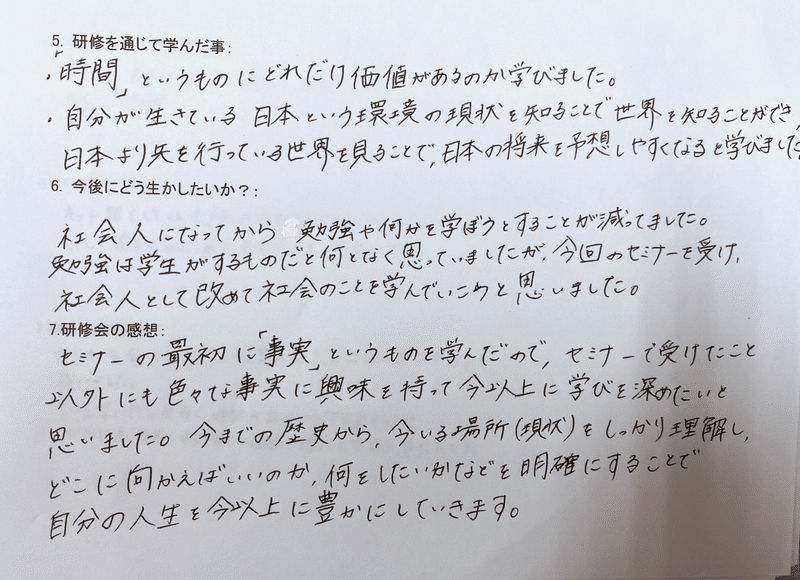 5. 研修を通じて学んだ事:
・「時間」というものにどれだけ価値があるのか学びました。
・自分が生きている日本という環境の現状を知ることで世界を知ることができ、
日本より先を行っている世界を見ることで、日本の将来を予想しやすくなると学びました。
6. 今後にどう生かしたいか？:
社会人になってから勉強や何かを学ぼうとすることが減ってました。
勉強は学生がするものだと何となく思っていましたが、今回のセミナーを受け、
社会人として改めて社会のことを学んでいこうと思いました。
7.研修会の感想:
セミナーの最初に「事実」というものを学んだので、セミナーで受けたこと
以外にも色々な事実に興味を持って今以上に学びを深めたいと
思いました。今までの歴史から、今いる場所(現状)をしっかり理解し、
どこに向かえばいいのか、何をしたいかなどを明確にすることで
自分の人生を今以上に豊かにしていきます。